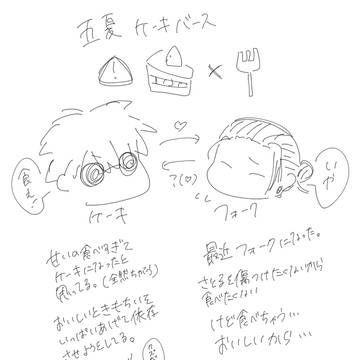 五夏 ケーキバース
食え!
いや
?(♡)
ケーキ
フォーク
甘いの食べすぎて
ケーキになったと
思ってる。(全然ちがう)
おいしいときもちいを
いっぱいあげて依存
させようとしてる。
最近フォークになった。
さとるを傷つけたくないから
食べたくない
けど食べちゃう…
おいしいから…